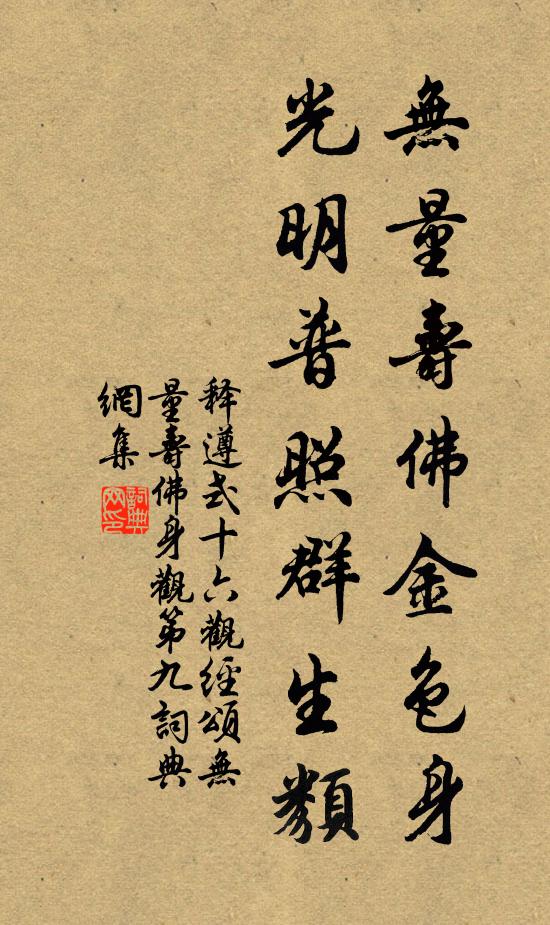 無量壽佛金色身
光明普照群生類
释遵式十六觀經頌無
量壽佛身觀第九詞典
網集
詞典
网印